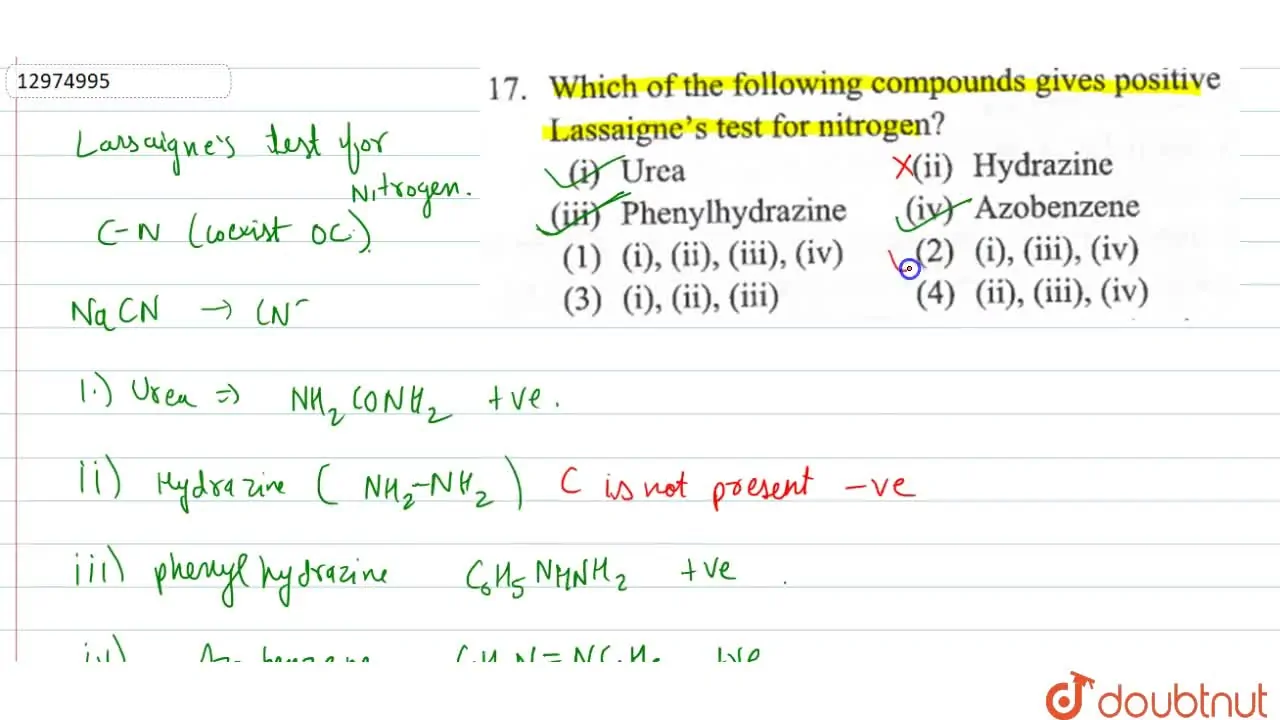 12974995
17. Which of the following compounds gives positive
Lassaigne's test for nitrogen?
(i) Urea (ii) Hydrazine
(iii) Phenylhydrazine (iv) Azobenzene
(1) (i), (ii), (iii), (iv) (2) (i), (iii), (iv)
(3) (i), (ii), (iii) (4) (ii), (iii), (iv)
Lassaigne's test for
Nitrogen.
C-N (coexist OC).
NaCN → CN⁻
1.) Urea ⇒ NH₂CONH₂ +ve.
ii) Hydrazine ( NH₂-NH₂ ) C is not present -ve
iii) phenyl hydrazine C₆H₅NHNH₂ +ve .
iv)
doubtnut